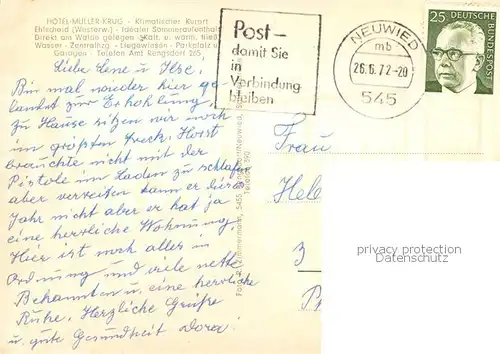 HOTEL-MÜLLER-KRUG - Klimatischer Kurort
Ehlscheid (Westerw.) - Idealer Sommeraufenthalt
Direkt am Walde gelegen - Kalt. u. warm. fließ.
Wasser - Zentralhzg. - Liegewiesen - Parkplatz u.
Garagen - Telefon Amt Rengsdorf 265
Liebe Lene u Ilse.
Bin mal wieder hier ge-
landet zur Erhohlung,
zu Hause sitzen wir noch
im größten Dreck. Horst
brauchte nicht mit der
Pistole im Laden zu schlafen
aber verreisen kann er dieses
Jahr nicht aber er hat ja
eine herrliche Wohnung.
Hier ist noch alles in
Ordnung und viele nette
Bekannten u. eine herrliche
Ruhe. Herzliche Grüße
u. gute Gesundheit
Post –
damit Sie
in
Verbindung
bleiben
NEUWIED
mb
26.6.72-20
545
25
DEUTSCHE
BUNDESPOST
Frau
Hele
3
privacy protection
Datenschutz